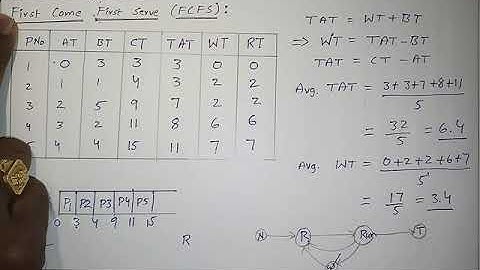 First Come First Serve (FCFS):
PNo AT BT CT TAT WT RT
1 0 3 3 3 0 0
2 1 1 4 3 2 2
3 2 5 9 7 2 2
4 3 2 11 8 6 6
4 4 15 11 7 7
P1 P2 P3 P4 P5
0 3 4 9 11 15
R
TAT = WT + BT
⇒ WT = TAT - BT
TAT = CT - AT
Avg. TAT = 3+3+7+8+11
5
= 32/5 = 6.4
Avg. WT = 0+2+2+6+7
5
= 17/5 = 3.4
N R Run T
W